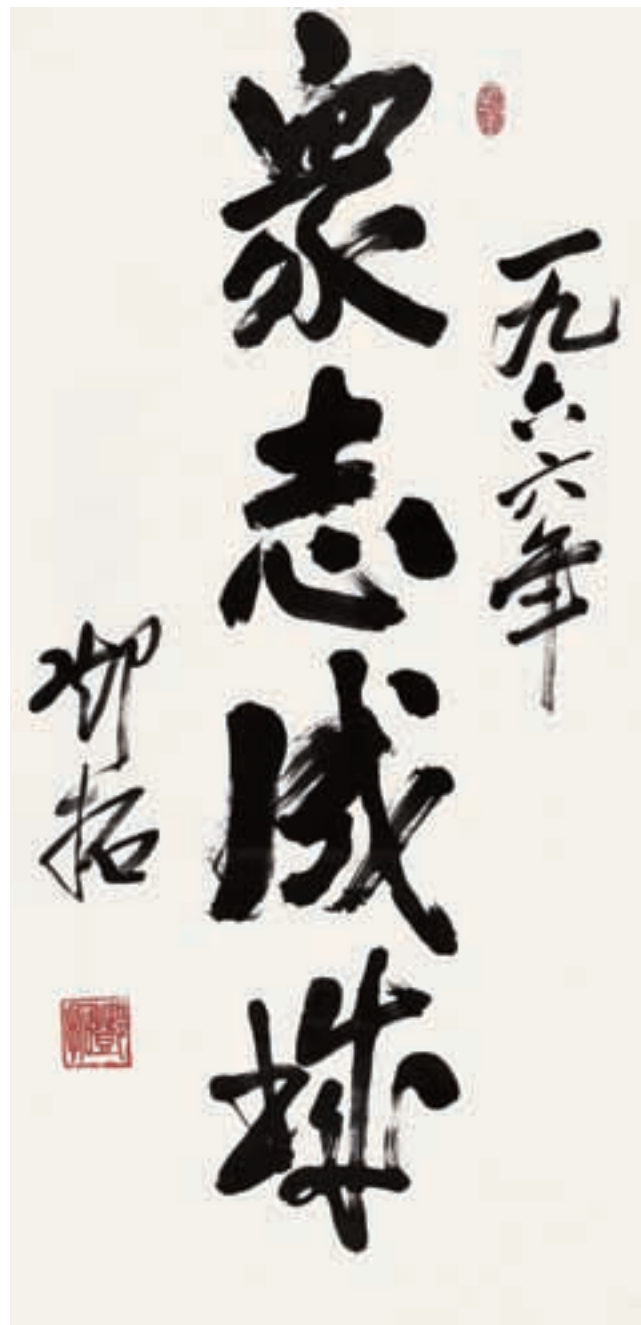 一九六六年
衆志成城
邓拓